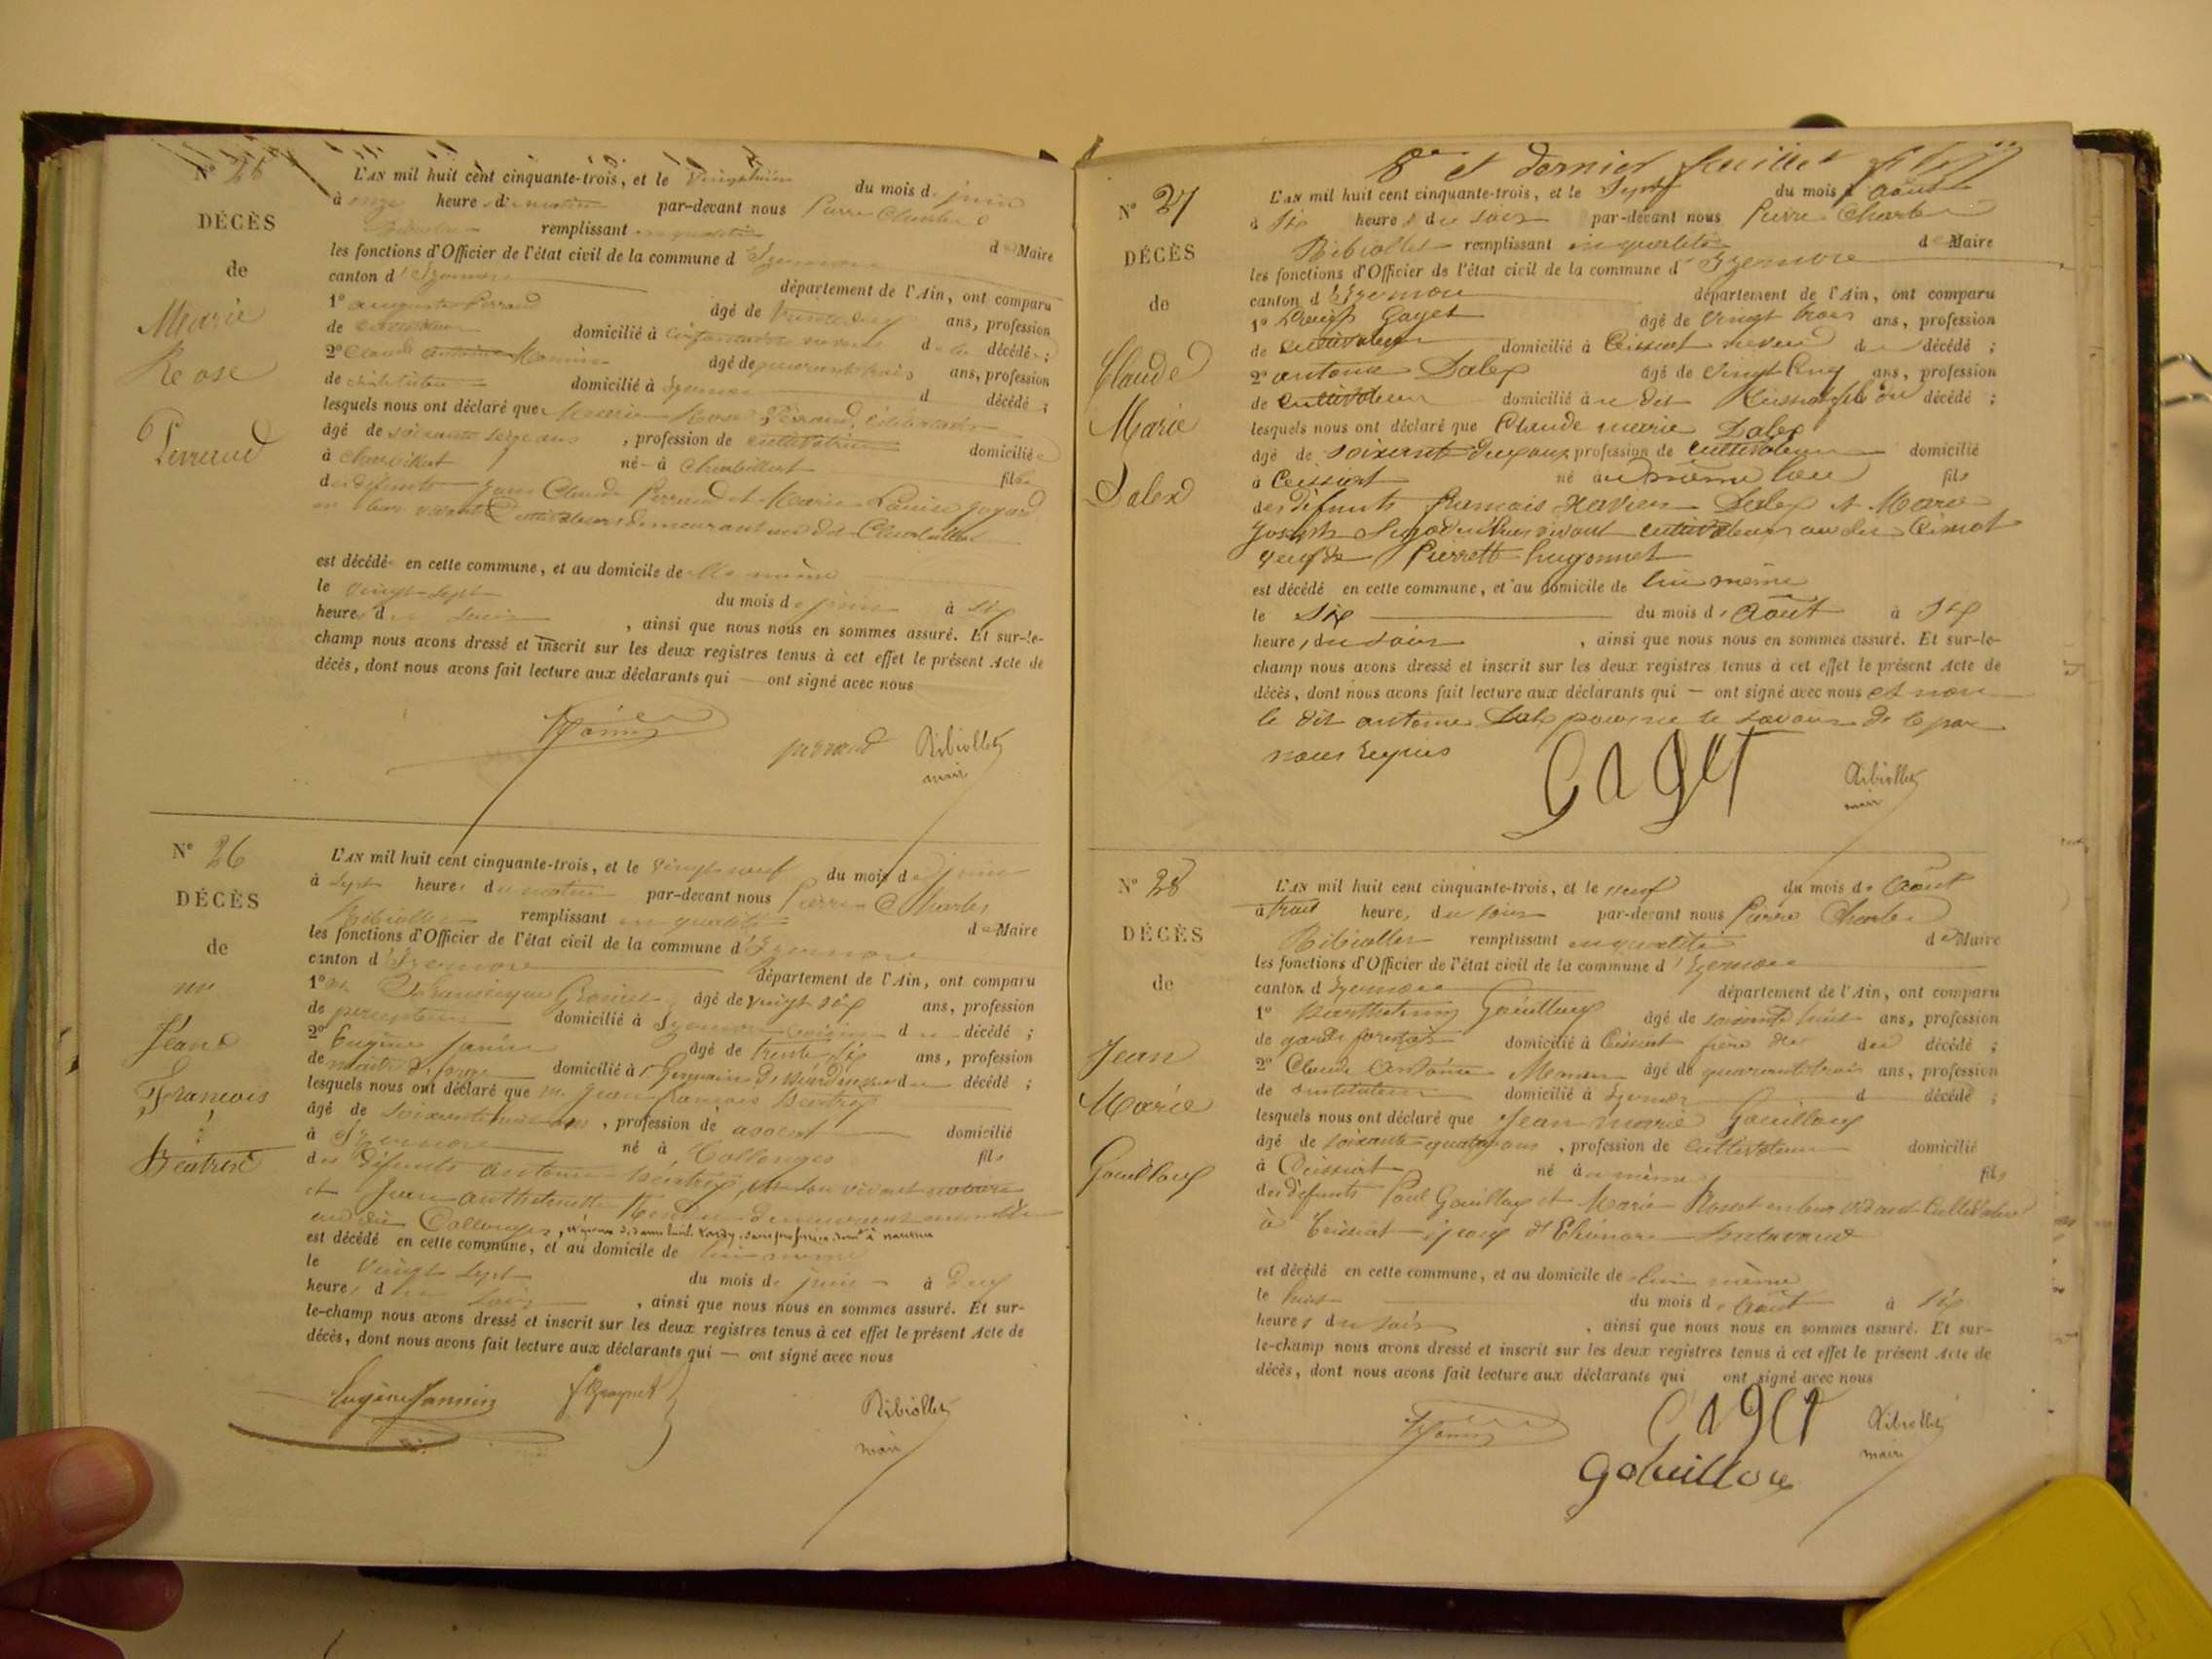 N° 25
DÉCÈS
de
Marie
Rose
Perraud
L'AN mil huit cent cinquante-trois, et le vingt huit du mois de juin
à onze heures du matin par-devant nous Pierre Charles
remplissant en qualité de Maire
les fonctions d'Officier de l'état civil de la commune d'Izernore
canton d'Izernore département de l'Ain, ont comparu
1° auguste Perraud âgé de ans, profession
de cultivateur domicilié à de la décédée ;
2° Claude antoine Monnin âgé de quarante trois ans, profession
de instituteur domicilié à Izernore d décédé ;
lesquels nous ont déclaré que Marie Rose Perraud, célibataire
âgé de soixante seize ans, profession de cultivatrice domiciliée
à Charbillat née à Charbillat fille
des défunts Jean Claude Perraud et Marie Louise Goyard
en leur vivant Cultivateurs demeurant au dit Charbillat
est décédée en cette commune, et au domicile de elle même
le vingt-sept du mois de juin à six
heures du soir, ainsi que nous nous en sommes assuré. Et sur-le-
champ nous avons dressé et inscrit sur les deux registres tenus à cet effet le présent Acte de
décès, dont nous avons fait lecture aux déclarants qui — ont signé avec nous
perraud Ribiollet
maire
N° 26
DÉCÈS
de
mr
Jean
François
Béatrix
L'AN mil huit cent cinquante-trois, et le vingt neuf du mois de juin
à sept heures du matin par-devant nous Pierre Charles
Ribiollet remplissant en qualité de Maire
les fonctions d'Officier de l'état civil de la commune d'Izernore
canton d'Izernore département de l'Ain, ont comparu
1° mr âgé de vingt six ans, profession
de percepteur domicilié à Izernore voisin du décédé ;
2° Eugène Janin âgé de trente six ans, profession
de maître de forge domicilié à St Germain de du décédé ;
lesquels nous ont déclaré que m. Jean françois Béatrix
âgé de ans, profession de avocat domicilié
à Izernore né à Collonges fils
des défunts antoine Béatrix, en son vivant notaire
et Jeanne anthelmette demeurant ensemble
au dit Collonges,
est décédé en cette commune, et au domicile de lui-même
le vingt sept du mois de juin à deux
heures du soir, ainsi que nous nous en sommes assuré. Et sur-
le-champ nous avons dressé et inscrit sur les deux registres tenus à cet effet le présent Acte de
décès, dont nous avons fait lecture aux déclarants qui — ont signé avec nous
Eugène Jannin Ribiollet
maire
8e et dernier feuillet
N° 27
DÉCÈS
de
Claude
Marie
Dalex
L'AN mil huit cent cinquante-trois, et le Sept du mois d'août
à six heures du soir par-devant nous Pierre Charles
Ribiollet remplissant en qualité de Maire
les fonctions d'Officier de l'état civil de la commune d'Izernore
canton d'Izernore département de l'Ain, ont comparu
1° Gaget âgé de vingt trois ans, profession
de cultivateur domicilié à Ceissiat neveu du décédé ;
2° antoine Dalex âgé de vingt cinq ans, profession
de cultivateur domicilié au dit Ceissiat fils du décédé ;
lesquels nous ont déclaré que Claude marie Dalex
âgé de soixante deux ans profession de cultivateur domicilié
à Ceissiat né au même lieu fils
des défunts françois Xavier Dalex et Marie
Josephte en leur vivant cultivateurs au dit Ceissiat
veuf de Pierrette hugonnet
est décédé en cette commune, et au domicile de lui même
le six du mois d'août à six
heures du soir, ainsi que nous nous en sommes assuré. Et sur-le-
champ nous avons dressé et inscrit sur les deux registres tenus à cet effet le présent Acte de
décès, dont nous avons fait lecture aux déclarants qui — ont signé avec nous et non
le dit antoine Dalex pour ne le savoir de ce par
nous requis
Gaget Ribiollet
maire
N° 28
DÉCÈS
de
Jean
Marie
Gouilloux
L'AN mil huit cent cinquante-trois, et le neuf du mois d'août
à trois heures du soir par-devant nous Pierre Charles
Ribiollet remplissant en qualité de Maire
les fonctions d'Officier de l'état civil de la commune d'Izernore
canton d'Izernore département de l'Ain, ont comparu
1° Barthélemy Gouilloux âgé de soixante huit ans, profession
de garde forestier domicilié à Ceissiat frère du décédé ;
2° Claude Antoine Monnin âgé de quarante trois ans, profession
de instituteur domicilié à Izernore d décédé ;
lesquels nous ont déclaré que Jean marie Gouilloux
âgé de soixante quatre ans, profession de cultivateur domicilié
à Ceissiat né au même fils
des défunts Paul Gouilloux et Marie Rosset en leur vivant Cultivateurs
à Ceissiat époux d'Eléonore
est décédé en cette commune, et au domicile de lui même
le huit du mois d'août à six
heures du soir, ainsi que nous nous en sommes assuré. Et sur-
le-champ nous avons dressé et inscrit sur les deux registres tenus à cet effet le présent Acte de
décès, dont nous avons fait lecture aux déclarants qui ont signé avec nous
Gaget Ribiollet
maire
gobuilloux